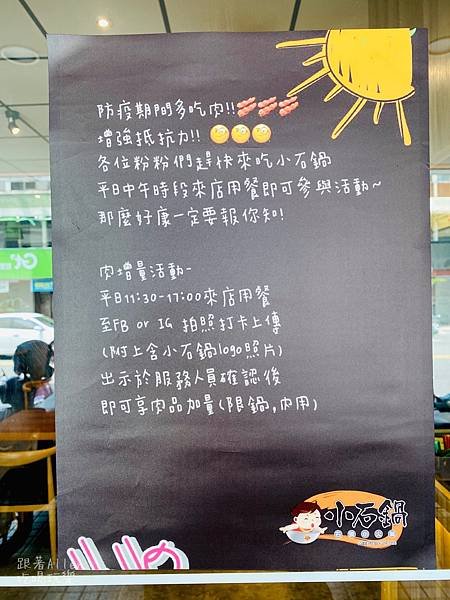 防疫期間多吃肉!!
增強抵抗力!!
各位粉粉們趕快來吃小石鍋
平日中午時段來店用餐即可參與活動~
那麼好康一定要報你知!
肉增量活動-
平日11:30-17:00來店用餐
至FB or IG 拍照打卡上傳
(附上含小石鍋logo照片)
出示於服務人員確認後
即可享肉品加量(限鍋,內用)
小石鍋
跟著Alle